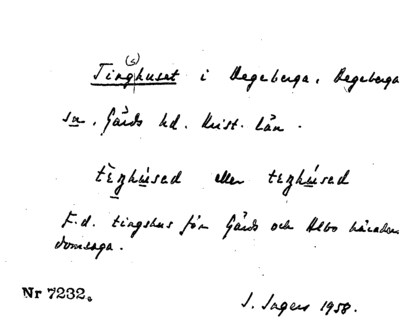 Ting(s)huset i Degeberga, Degeberga
sn, Gärds hd. Krist. län.
tèŋhúsəd eller teŋhúsəd
F.d. tingshus för Gärds och Albo häraders
domsaga.
Nr 7232.
S. Ingers 1958.